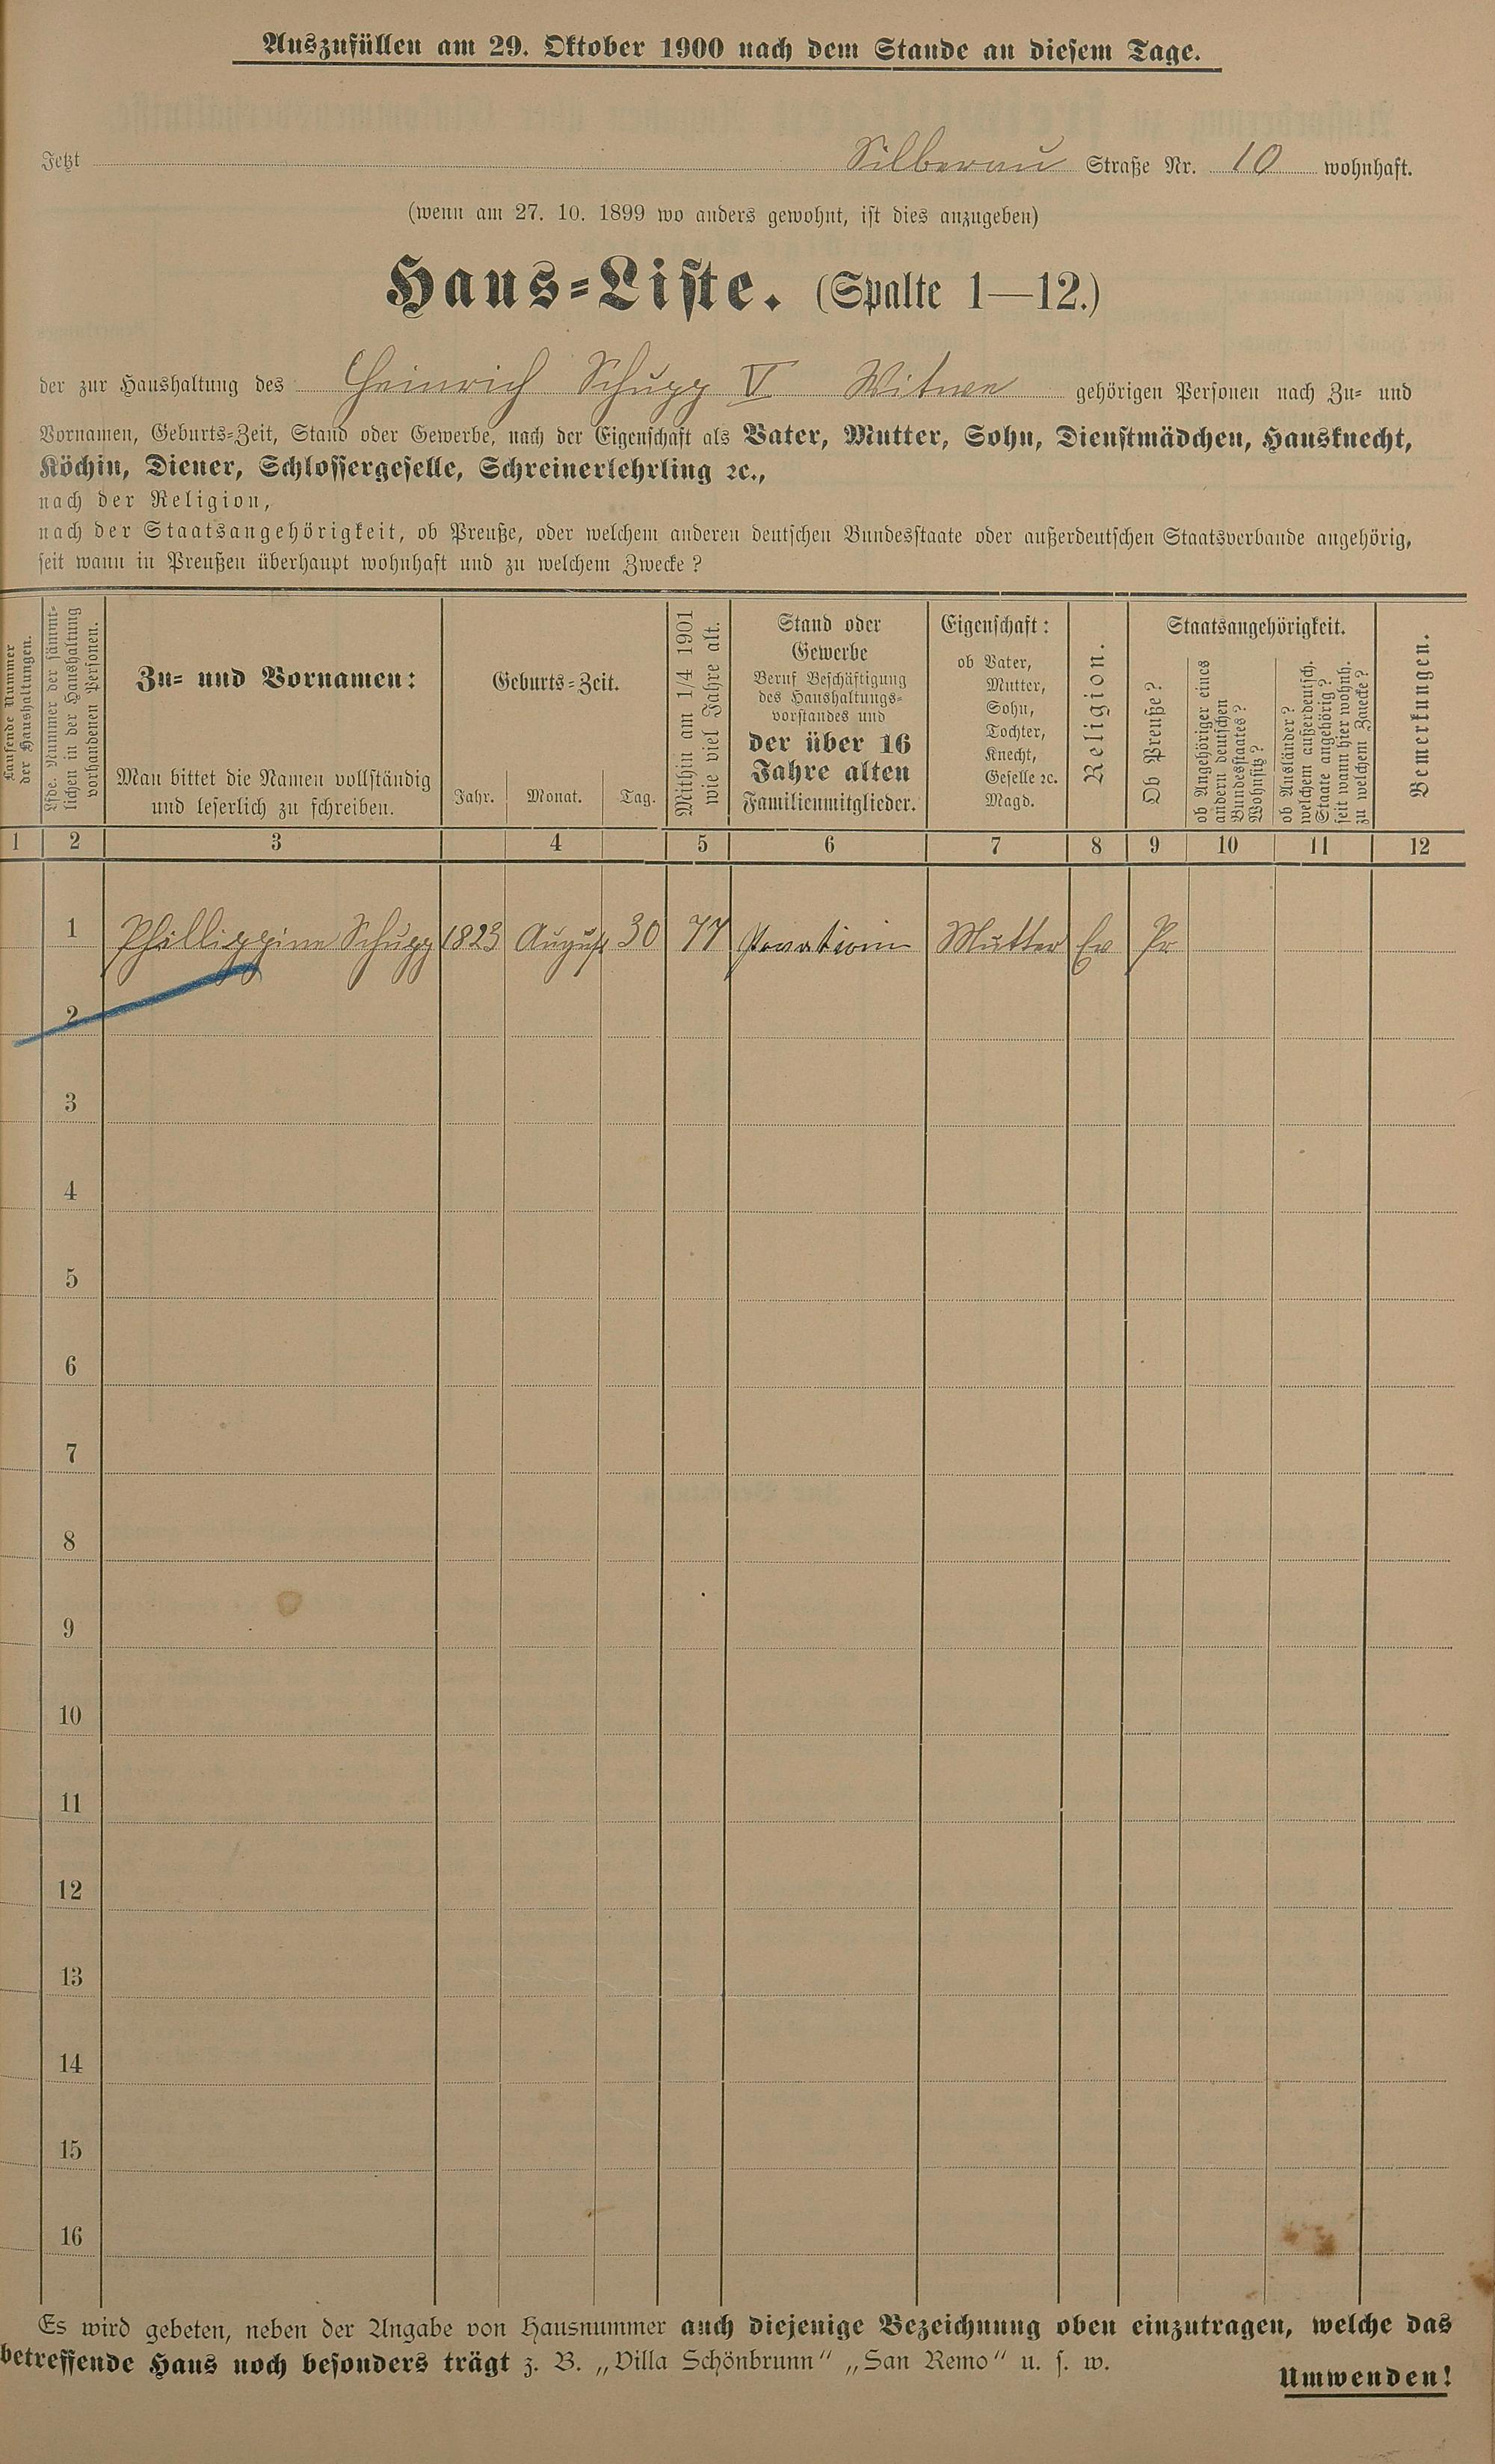 Auszufüllen am 29. Oktober 1900 nach dem Stande an diesem Tage.
Jetzt Silberau Straße Nr. 10 wohnhaft.
(wenn am 27. 10. 1899 wo anders gewohnt, ist dies anzugeben)
Haus-Liste. (Spalte 1—12.)
der zur Haushaltung des Heinrich Schupp V Witwe gehörigen Personen nach Zu- und
Vornamen, Geburts-Zeit, Stand oder Gewerbe, nach der Eigenschaft als Vater, Mutter, Sohn, Dienstmädchen, Hausknecht,
Köchin, Diener, Schlossergeselle, Schreinerlehrling ꝛc.,
nach der Religion,
nach der Staatsangehörigkeit, ob Preuße, oder welchem anderen deutschen Bundesstaate oder außerdeutschen Staatsverbande angehörig,
seit wann in Preußen überhaupt wohnhaft und zu welchem Zwecke?
Laufende Nummer
der Haushaltungen.
Lfde. Nummer der sämmt-
lichen in der Haushaltung
vorhandenen Personen.
Zu- und Vornamen:
Man bittet die Namen vollständig
und leserlich zu schreiben.
Geburts-Zeit.
Jahr. Monat. Tag.
Mithin am 1/4 1901
wie viel Jahre alt.
Stand oder
Gewerbe
Beruf Beschäftigung
des Haushaltungs-
vorstandes und
der über 16
Jahre alten
Familienmitglieder.
Eigenschaft:
ob Vater,
Mutter,
Sohn,
Tochter,
Knecht,
Geselle ꝛc.
Magd.
Religion.
Staatsangehörigkeit.
Ob Preuße?
ob Angehöriger eines
andern deutschen
Bundesstaates?
Wohnsitz?
ob Ausländer?
welchem außerdeutsch.
Staate angehörig?
seit wann hier wohnh.
zu welchem Zwecke?
Bemerkungen.
1 2 3 4 5 6 7 8 9 10 11 12
1 Phillippine Schupp 1823 August 30 77 Mutter Ev Pr
2
3
4
5
6
7
8
9
10
11
12
13
14
15
16
Es wird gebeten, neben der Angabe von Hausnummer auch diejenige Bezeichnung oben einzutragen, welche das
betreffende Haus noch besonders trägt z. B. „Villa Schönbrunn“ „San Remo“ u. s. w.
Umwenden!